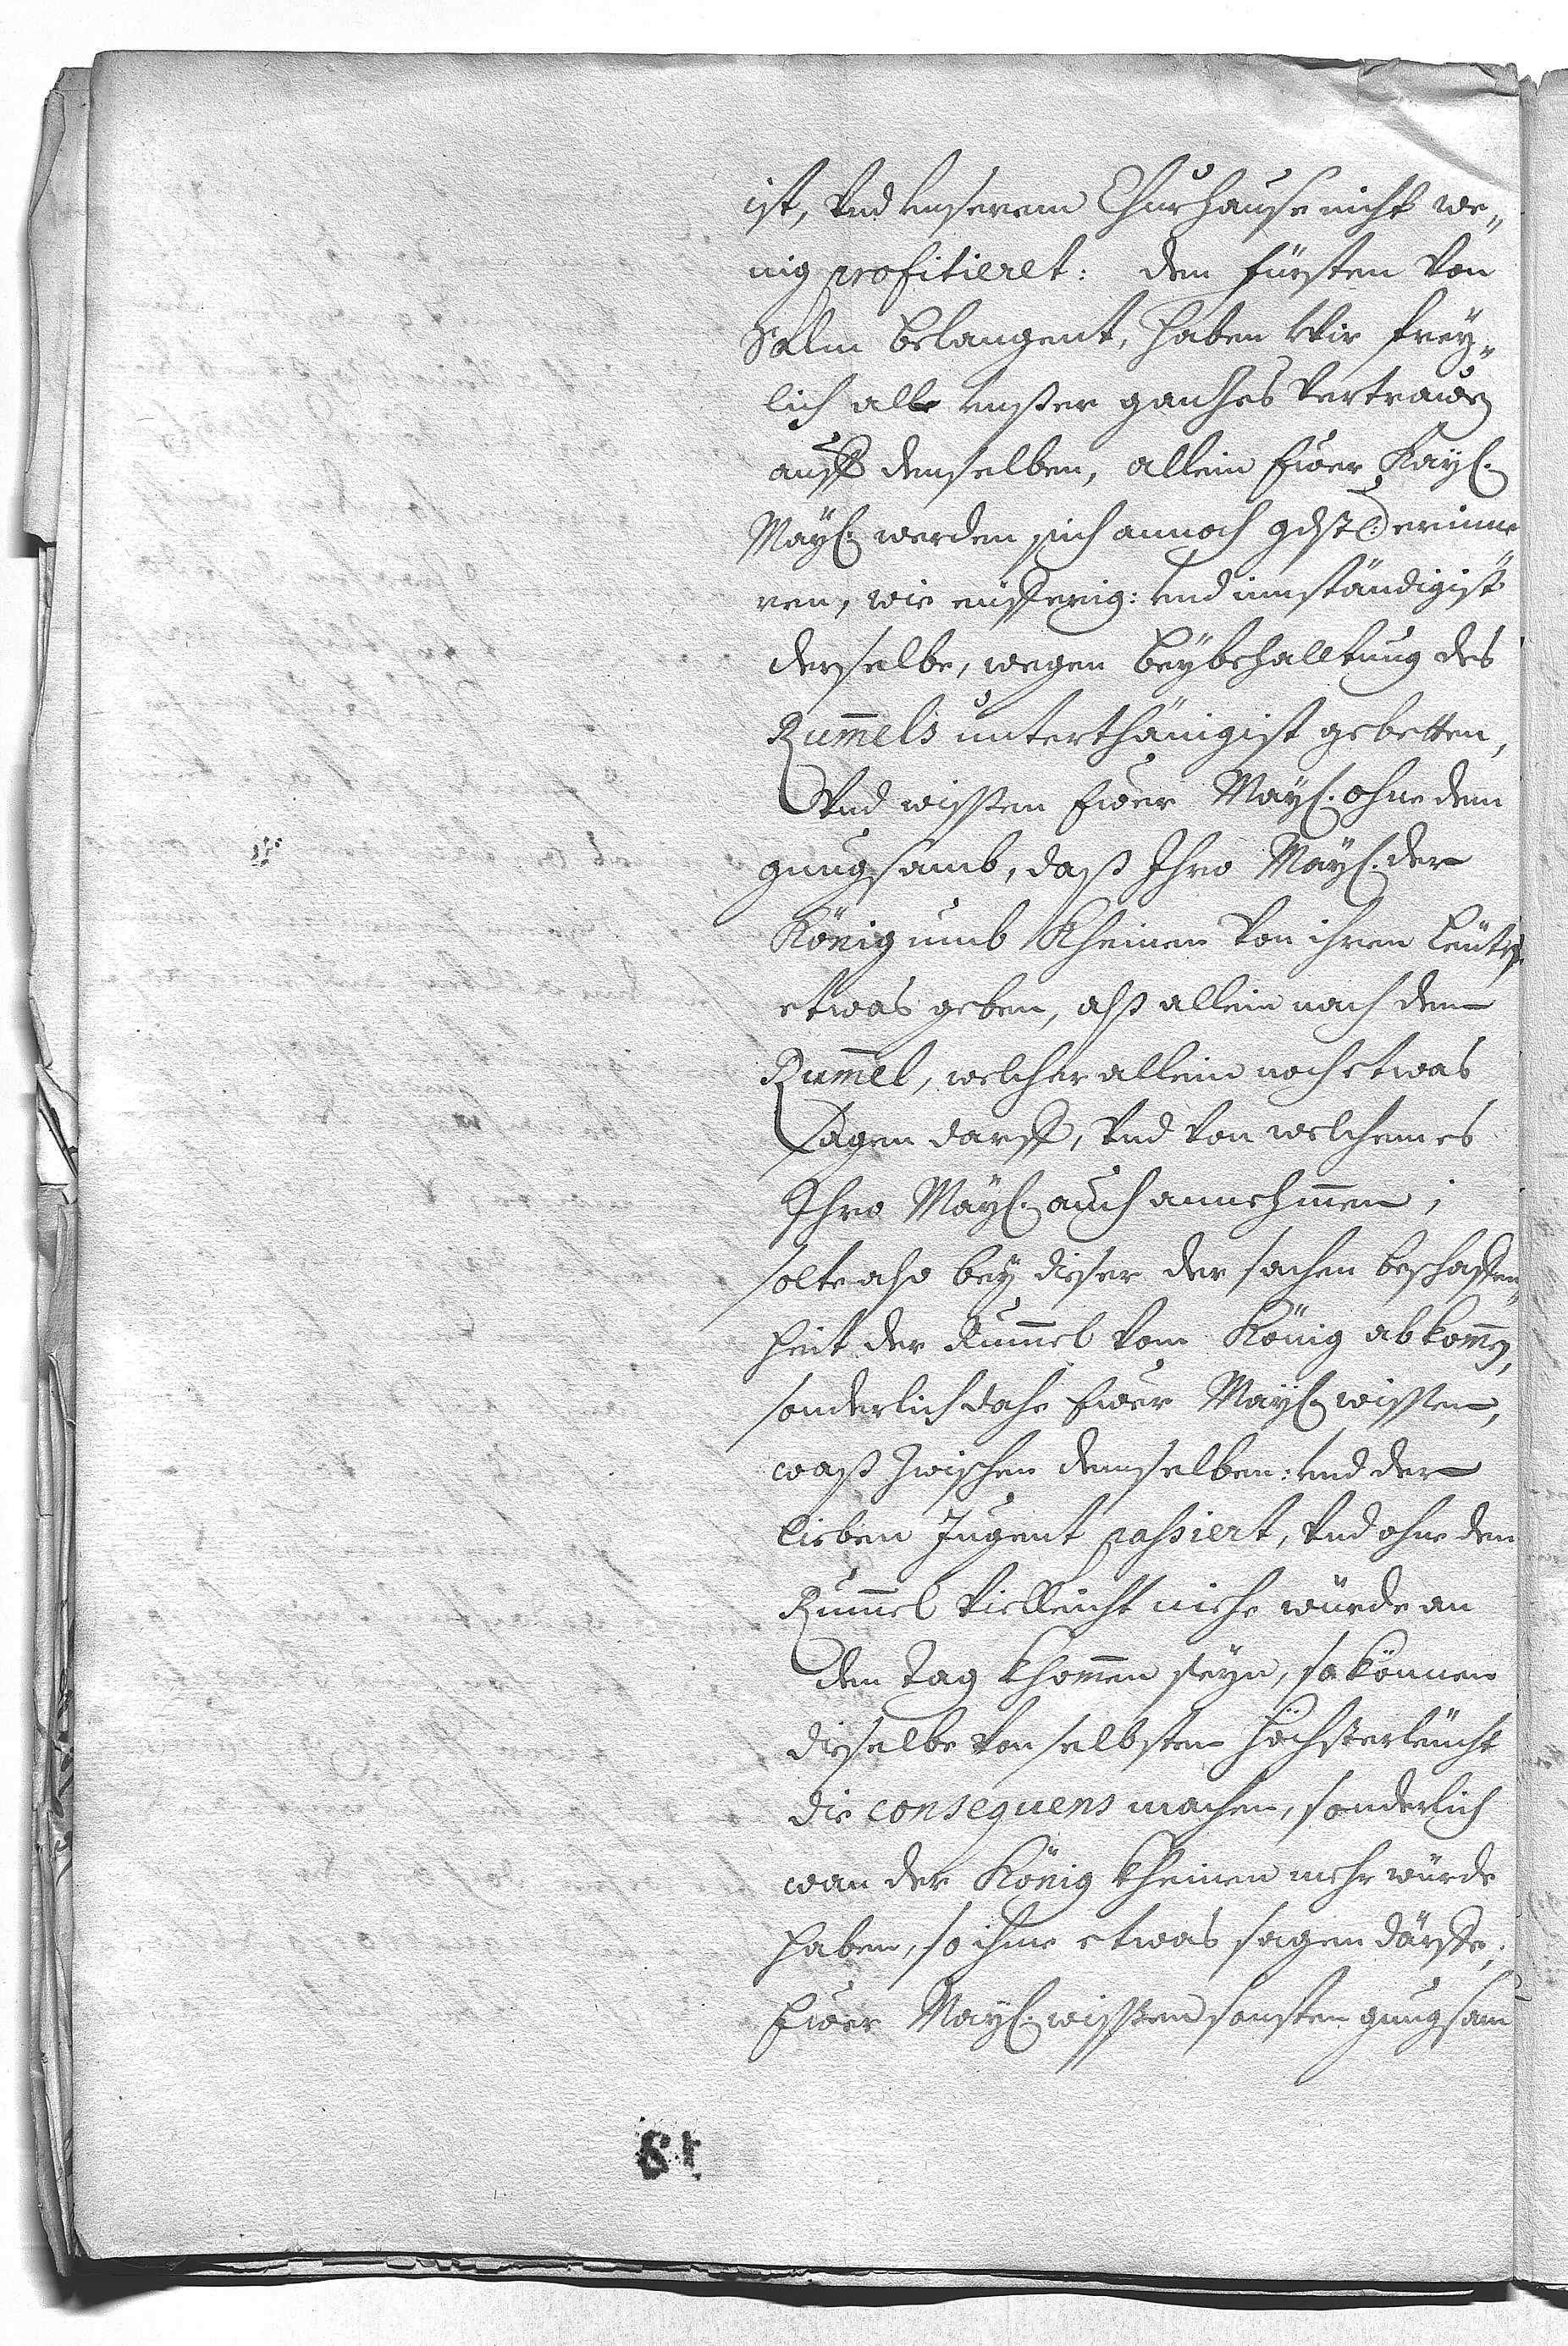 ist, Vnd unserem Churhause nicht we„
nig profitieret: den fürsten Von
Salm belangent, haben Wir frey„
lich alle unßer ganzes Vertrauen
auff denselben, allein Euer Kayl.
Mayl. werden sich annoch gdst erinne
ren, wie eufferig: und inständigist
derselbe, wegen beybehalltung des
Rum̄els unterthänigist gebetten,
Vnd wissen Euer Mayl. ohne dem
gnugsamb, daß Ihro Mayl. der
König umb kheinen Von ihren leuten
etwas geben, alß allein nach dem
Rum̄el, welcher allein noch etwas
sagen darff, Vnd Von welchem es
Ihro Mayl. auch annehmen;
solte also bey dieser der sachen beschaffen„
heit der Rum̄el Vom König abkom̄en,
sonderlich dahe Euer Mayl. wissen,
waß zwischen demselben: und der
lieben Jugent passiert, Vnd ohne den
Rum̄el Vielleicht niehe würde an
den tag khom̄en seyn, so können
dieselbe Von selbsten höchsterleucht
die consequens machen, sonderlich
wan der König kheinen mehr würde
haben, so ihme etwas sagen därffe;
Euer Mayl. wissen sonsten gnugsam
18